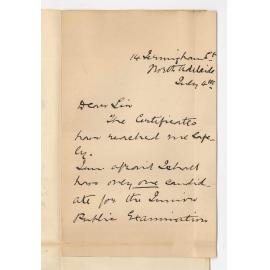 14 Jerningham St
North Adelaide
July 4th
Dear Sir
The Certificates
have reached me safe-
ly.
I am afraid I shall
have only one candid-
ate for the Junior
Public Examination